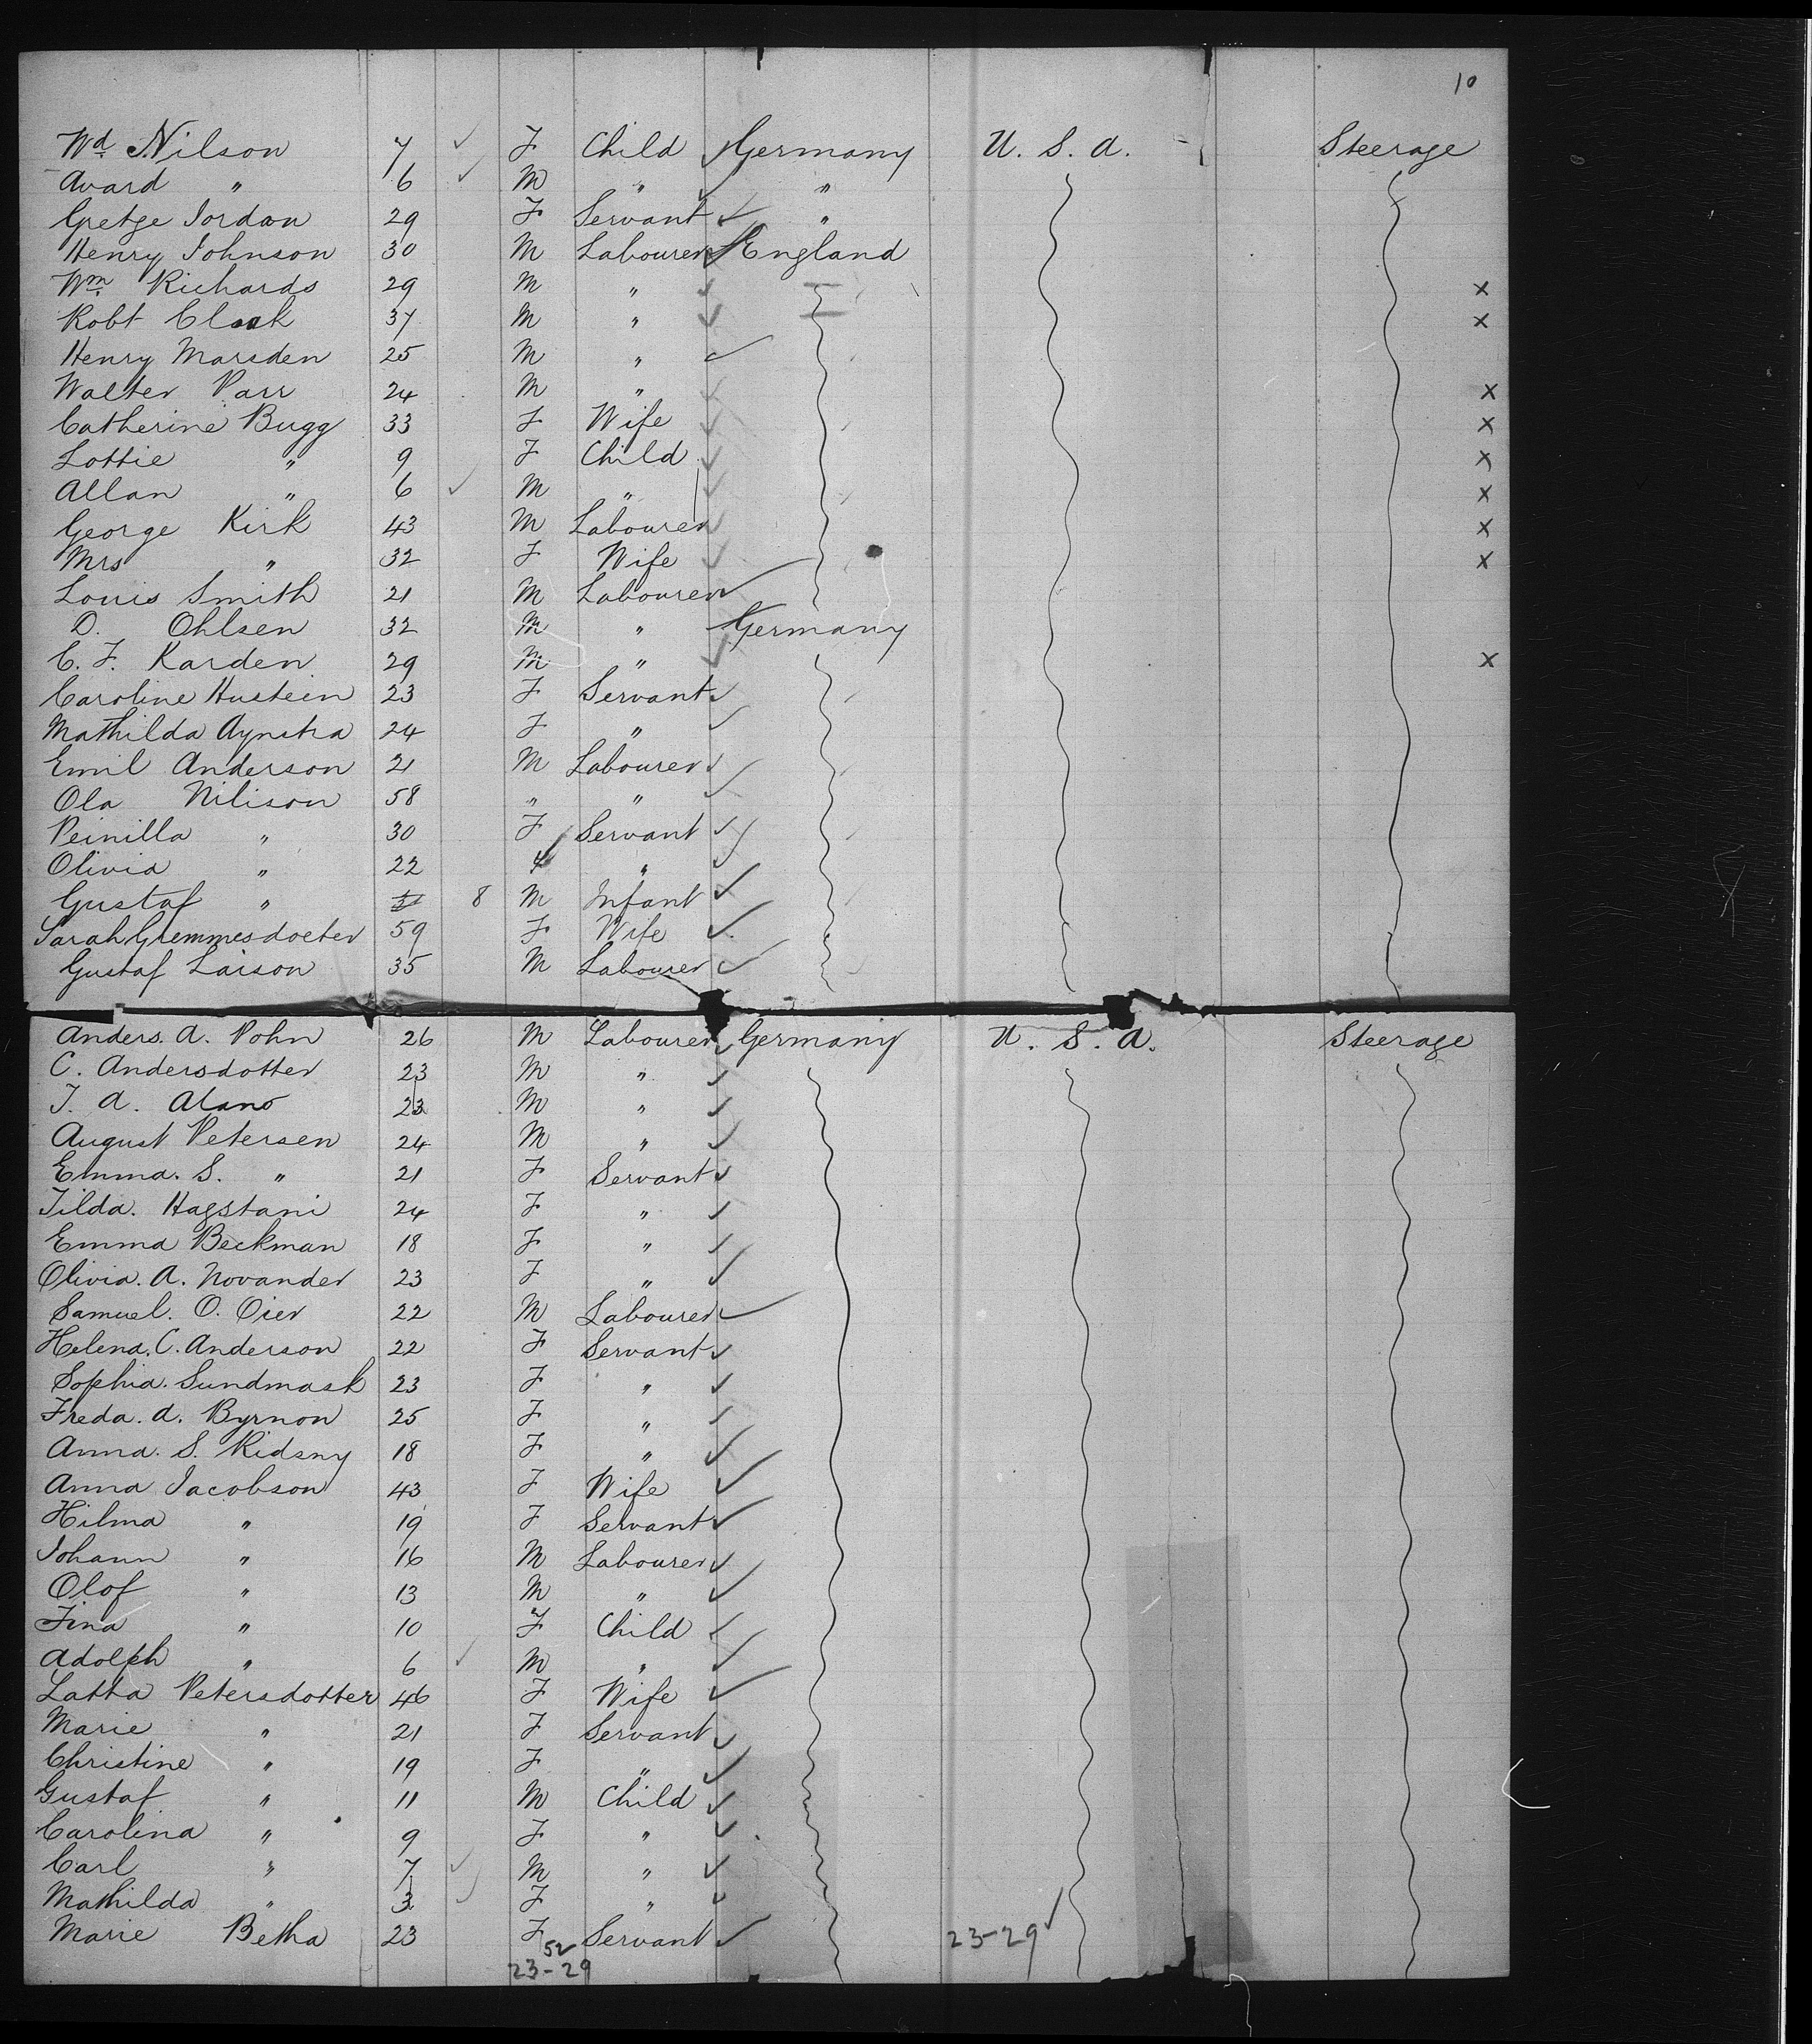 10
Wd. Nilson 7 ✓ F Child ✓ Germany U. S. A. Steerage
Avard " 6 ✓ M " ✓ "
Gretge Jordan 29 F Servant ✓ "
Henry Johnson 30 M Labourer ✓ England
Wm. Richards 29 M " ✓ x
Robt Clark 37 M " ✓ x
Henry Marsden 25 M " ✓
Walter Parr 24 M " ✓ x
Catherine Bugg 33 F Wife ✓ x
Lottie " 9 F Child ✓ x
Allan " 6 ✓ M " ✓ x
George Kirk 43 M Labourer ✓ x
Mrs " 32 F Wife ✓ x
Louis Smith 21 M Labourer ✓
D. Ohlsen 32 M " Germany
C. F. Karden 29 M " ✓ x
Caroline Hustein 23 F Servant ✓
Mathilda Aynstra 24 F " ✓
Emil Anderson 21 M Labourer ✓
Ola Nilison 58 " " ✓
Peinilla " 30 F Servant ✓
Olivia " 22 " ✓
Gustaf " 8 M Infant ✓
Sarah Gremmesdoeter 59 F Wife ✓
Gustaf Laison 35 M Labourer ✓
Anders. A. Pohn 26 M Labourer ✓ Germany U. S. A. Steerage
C. Andersdotter 23 M " ✓
J. A. Alano 23 M " ✓
August Petersen 24 M " ✓
Emma. S. " 21 F Servant ✓
Tilda. Hagstani 24 F " ✓
Emma Beckman 18 F " ✓
Olivia. A. Novander 23 F " ✓
Samuel. O. Oier 22 M Labourer ✓
Helena. C. Anderson 22 F Servant ✓
Sophia. Sundmask 23 F " ✓
Freda. A. Byrnon 25 F " ✓
Anna. S. Ridsny 18 F " ✓
Anna Jacobson 43 F Wife ✓
Hilma " 19 F Servant ✓
Johann " 16 M Labourer ✓
Olof " 13 M " ✓
Fina " 10 F Child ✓
Adolph " 6 ✓ M " ✓
Latta Petersdotter 46 F Wife ✓
Marie " 21 F Servant ✓
Christine " 19 F " ✓
Gustaf " 11 M Child ✓
Carolina " 9 F " ✓
Carl " 7 ✓ M " ✓
Mathilda " 3 ✓ F " ✓
Marie Betha 23 F Servant ✓ 23-29 ✓
52
23-29